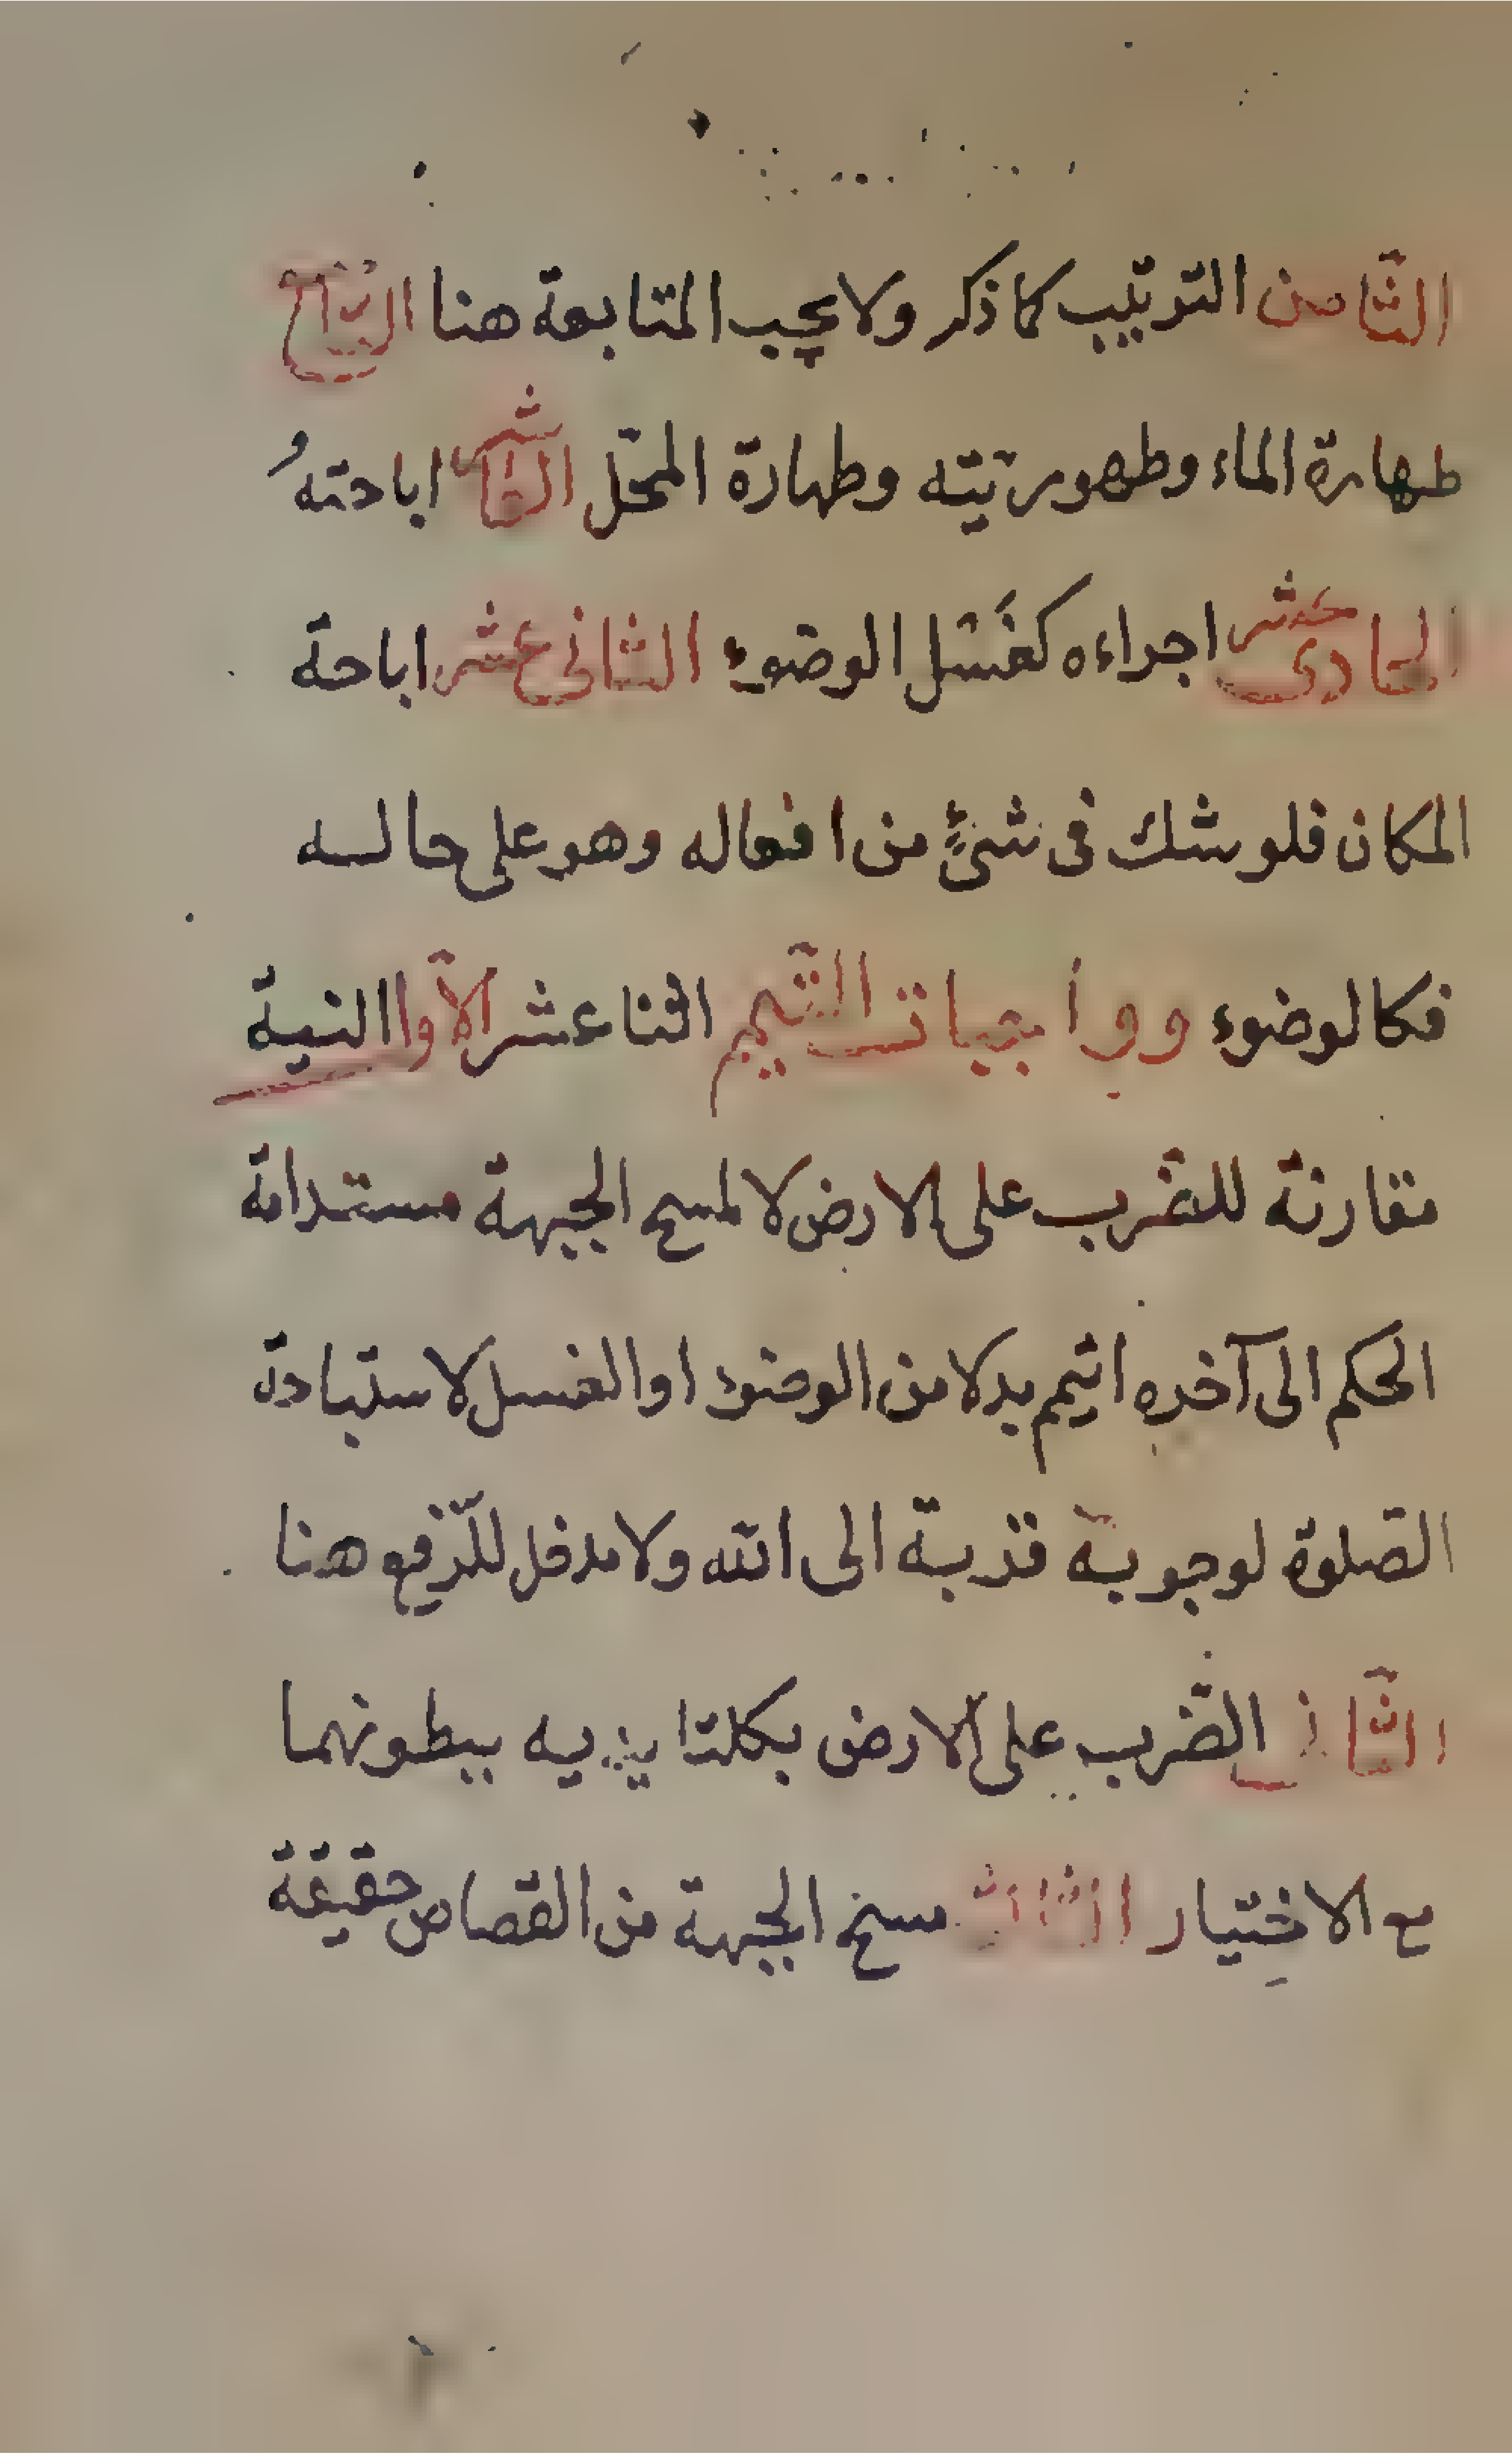 الثَّامن الترتيب كما ذكر ولا يجب المتابعة هنا التاسع
طهارة الماء وطهوريته وطهارة المحّل العاشر اباحتهُ
الحادى عشر اجراءه كغَسْل الوضوء الثانى عشر اباحة
المكان فلو شك فى شئٍ من افعاله وهو على حاله
فكالوضوء وواجبات التّيمم اثنا عشر الآوا النية
مقارنة للضّرب على الارض لا لمسح الجبهة مستدامة
الحكم الى آخره اتيمم بدلا من الوضوء او الغسل لاستباحة
الصّلوة لوجوبه قربة الى الله ولا مدخل للرّفع هنا
الثَّانى الضّرب على الارض بكلتا يديه ببطونهما
مع الاختِيار الثالث مسح الجبهة من القصاص حقيقة